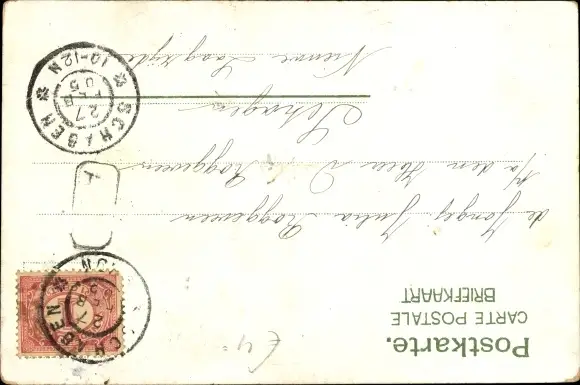 Postkarte.
CARTE POSTALE
BRIEFKAART
de Jongej Julia Roggeveen
p/a den Heer D. Roggeveen
Schagen
Nieuwe Laagzijde
SCHAGEN
27 FEB 05
10-12N
SCHAGEN
27 FEB